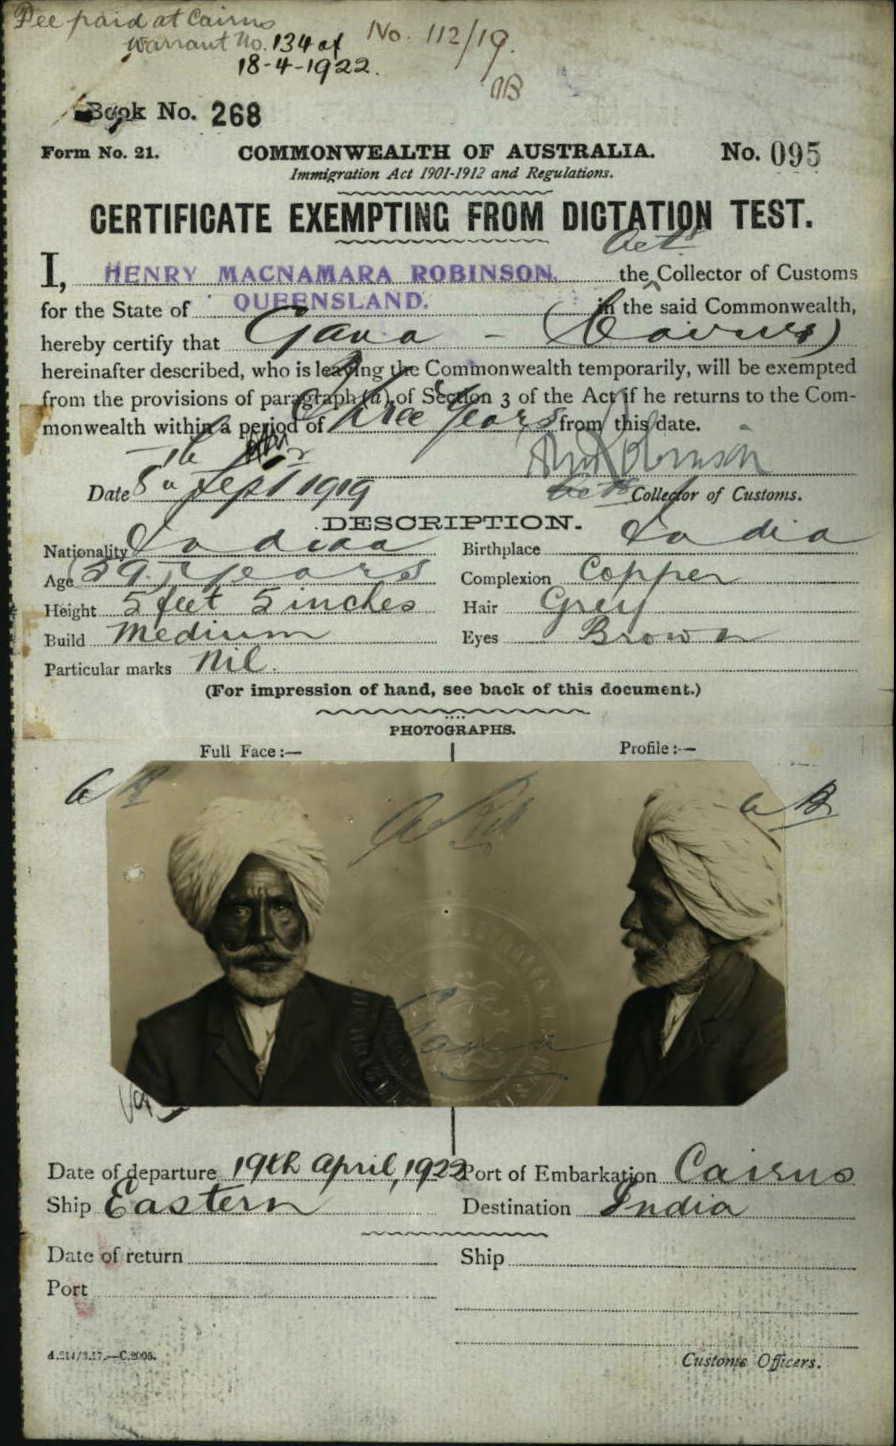 Fee paid at Cairns
Warrant No. 134 of
18-4-1922.
No. 112/19.
Book No. 268
Form No. 21. COMMONWEALTH OF AUSTRALIA. No. 095
Immigration Act 1901-1912 and Regulations.
CERTIFICATE EXEMPTING FROM DICTATION TEST.
Act
I, HENRY MACNAMARA ROBINSON. the Collector of Customs
for the State of QUEENSLAND. in the said Commonwealth,
hereby certify that Gava - (Cairns)
hereinafter described, who is leaving the Commonwealth temporarily, will be exempted
from the provisions of paragraph (a) of Section 3 of the Act if he returns to the Com-
monwealth within a period of Three Years from this date.
Date Sept 1919 Collector of Customs.
DESCRIPTION.
Nationality Indian Birthplace India
Age (59) years Complexion Copper
Height 5 feet 5 inches Hair Grey
Build Medium Eyes Brown
Particular marks Nil.
(For impression of hand, see back of this document.)
PHOTOGRAPHS.
Full Face:— Profile:—
Date of departure 19th April, 1922 Port of Embarkation Cairns
Ship Eastern Destination India
Date of return Ship
Port
Customs Officers.